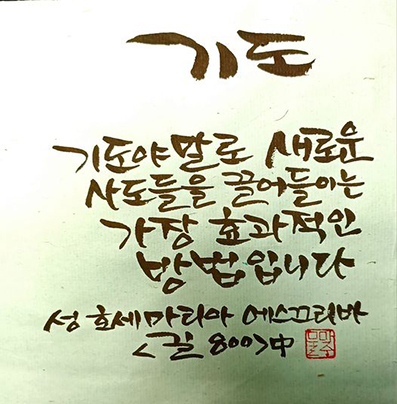 기도
기도야말로 새로운
사도들을 끌어들이는
가장 효과적인
방법입니다
성 호세마리아 에스끄리바
<길 800>中